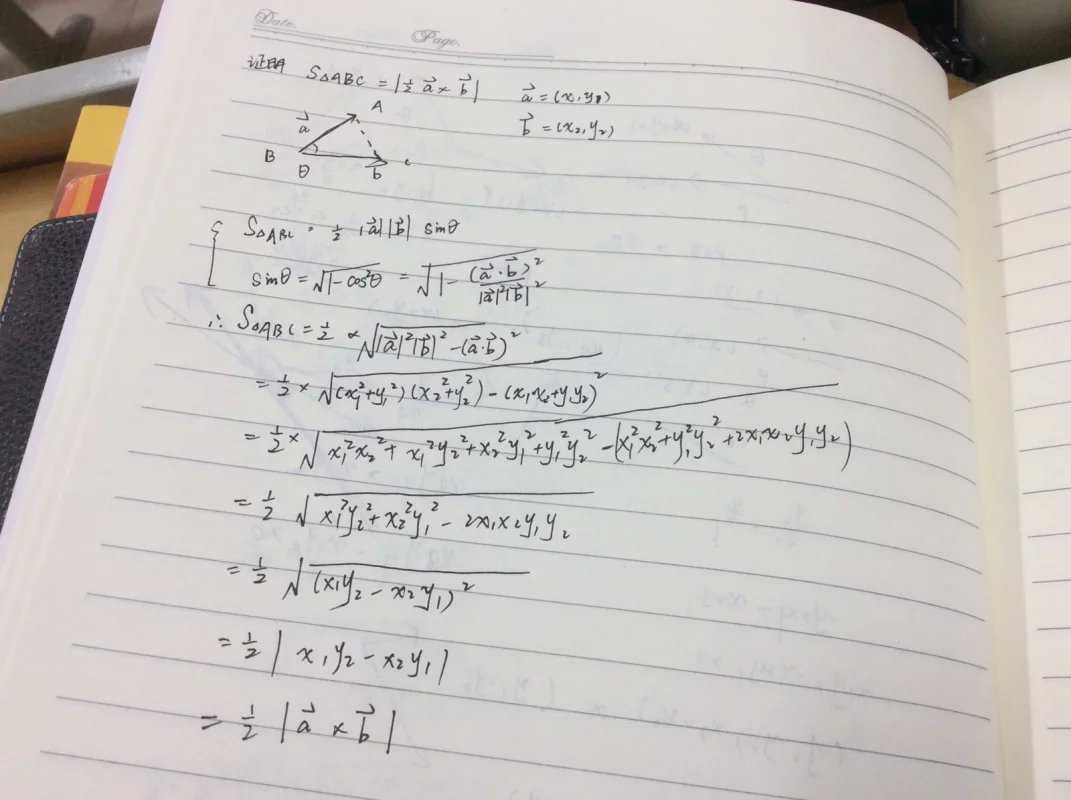 Date.
Page.
证明 S△ABC = |½ a⃗ × b⃗|
a⃗ = (x, y₁)
b⃗ = (x₂, y₂)
A
a⃗
B
θ
b⃗
c
S△ABC = ½ |a⃗||b⃗| sinθ
sinθ = √(1-cos²θ) = √(1 - (a⃗·b⃗)²/|a⃗|²|b⃗|²)
∴ S△ABC = ½ × √(|a⃗|²|b⃗|² - (a⃗·b⃗)²)
= ½ × √((x₁²+y₁²)(x₂²+y₂²) - (x₁x₂+y₁y₂)²)
= ½ × √(x₁²x₂² + x₁²y₂² + x₂²y₁² + y₁²y₂² - (x₁²x₂² + y₁²y₂² + 2x₁x₂y₁y₂))
= ½ √(x₁²y₂² + x₂²y₁² - 2x₁x₂y₁y₂)
= ½ √((x₁y₂ - x₂y₁)²)
= ½ |x₁y₂ - x₂y₁|
= ½ |a⃗ × b⃗|